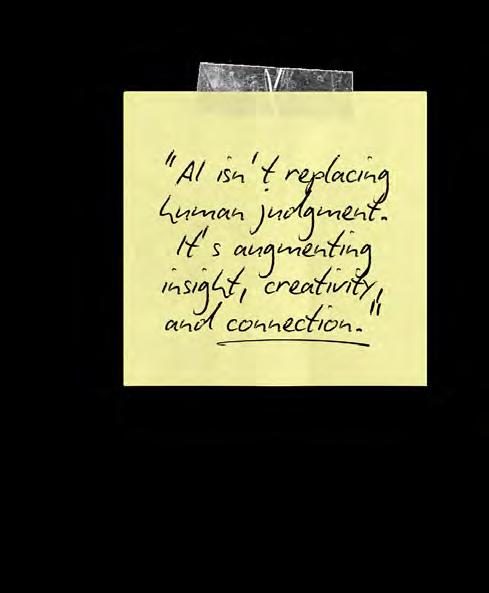 "AI isn't replacing
human judgment.
It's augmenting
insight, creativity,
and connection."